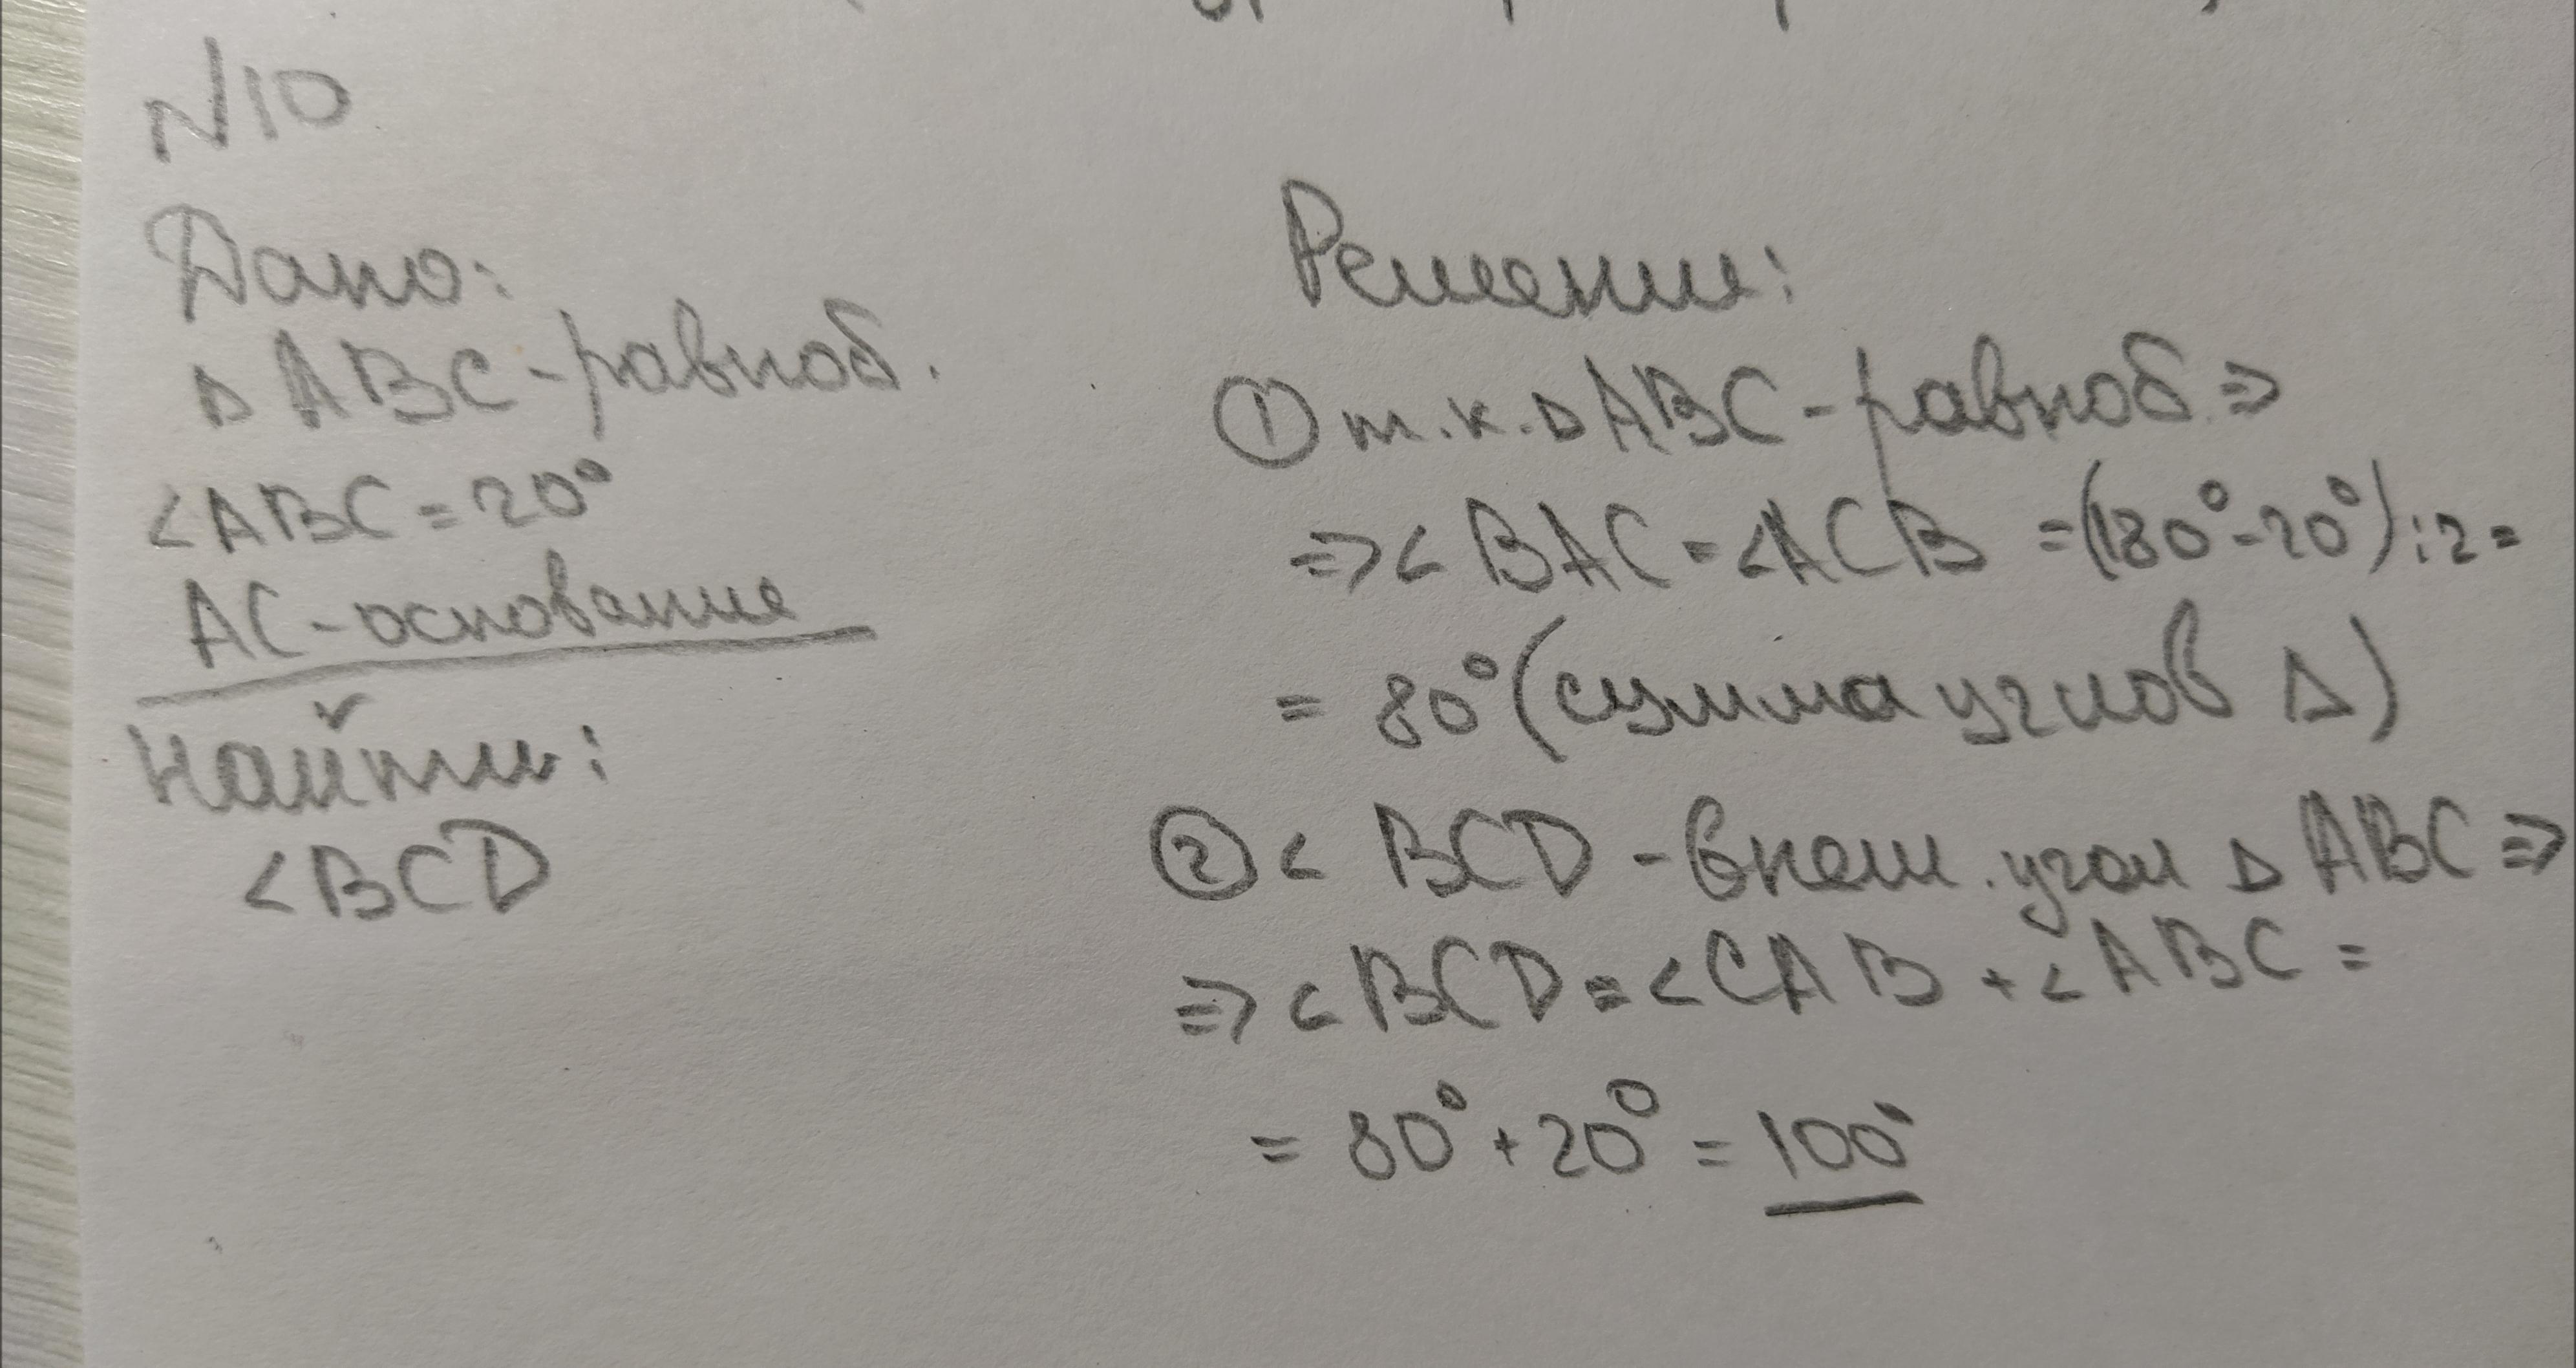 N10
Дано:
△ABC-равноб.
<ABC=20°
AC-основание
Найти:
<BCD
Решение:
① т.к.△ABC-равноб.⇒
⇒<BAC=<ACB =(180°-20°):2=
= 80°(сумма углов △)
②< BCD-внеш. угол △ABC⇒
⇒<BCD=<CAB+<ABC=
= 80°+20°=100°